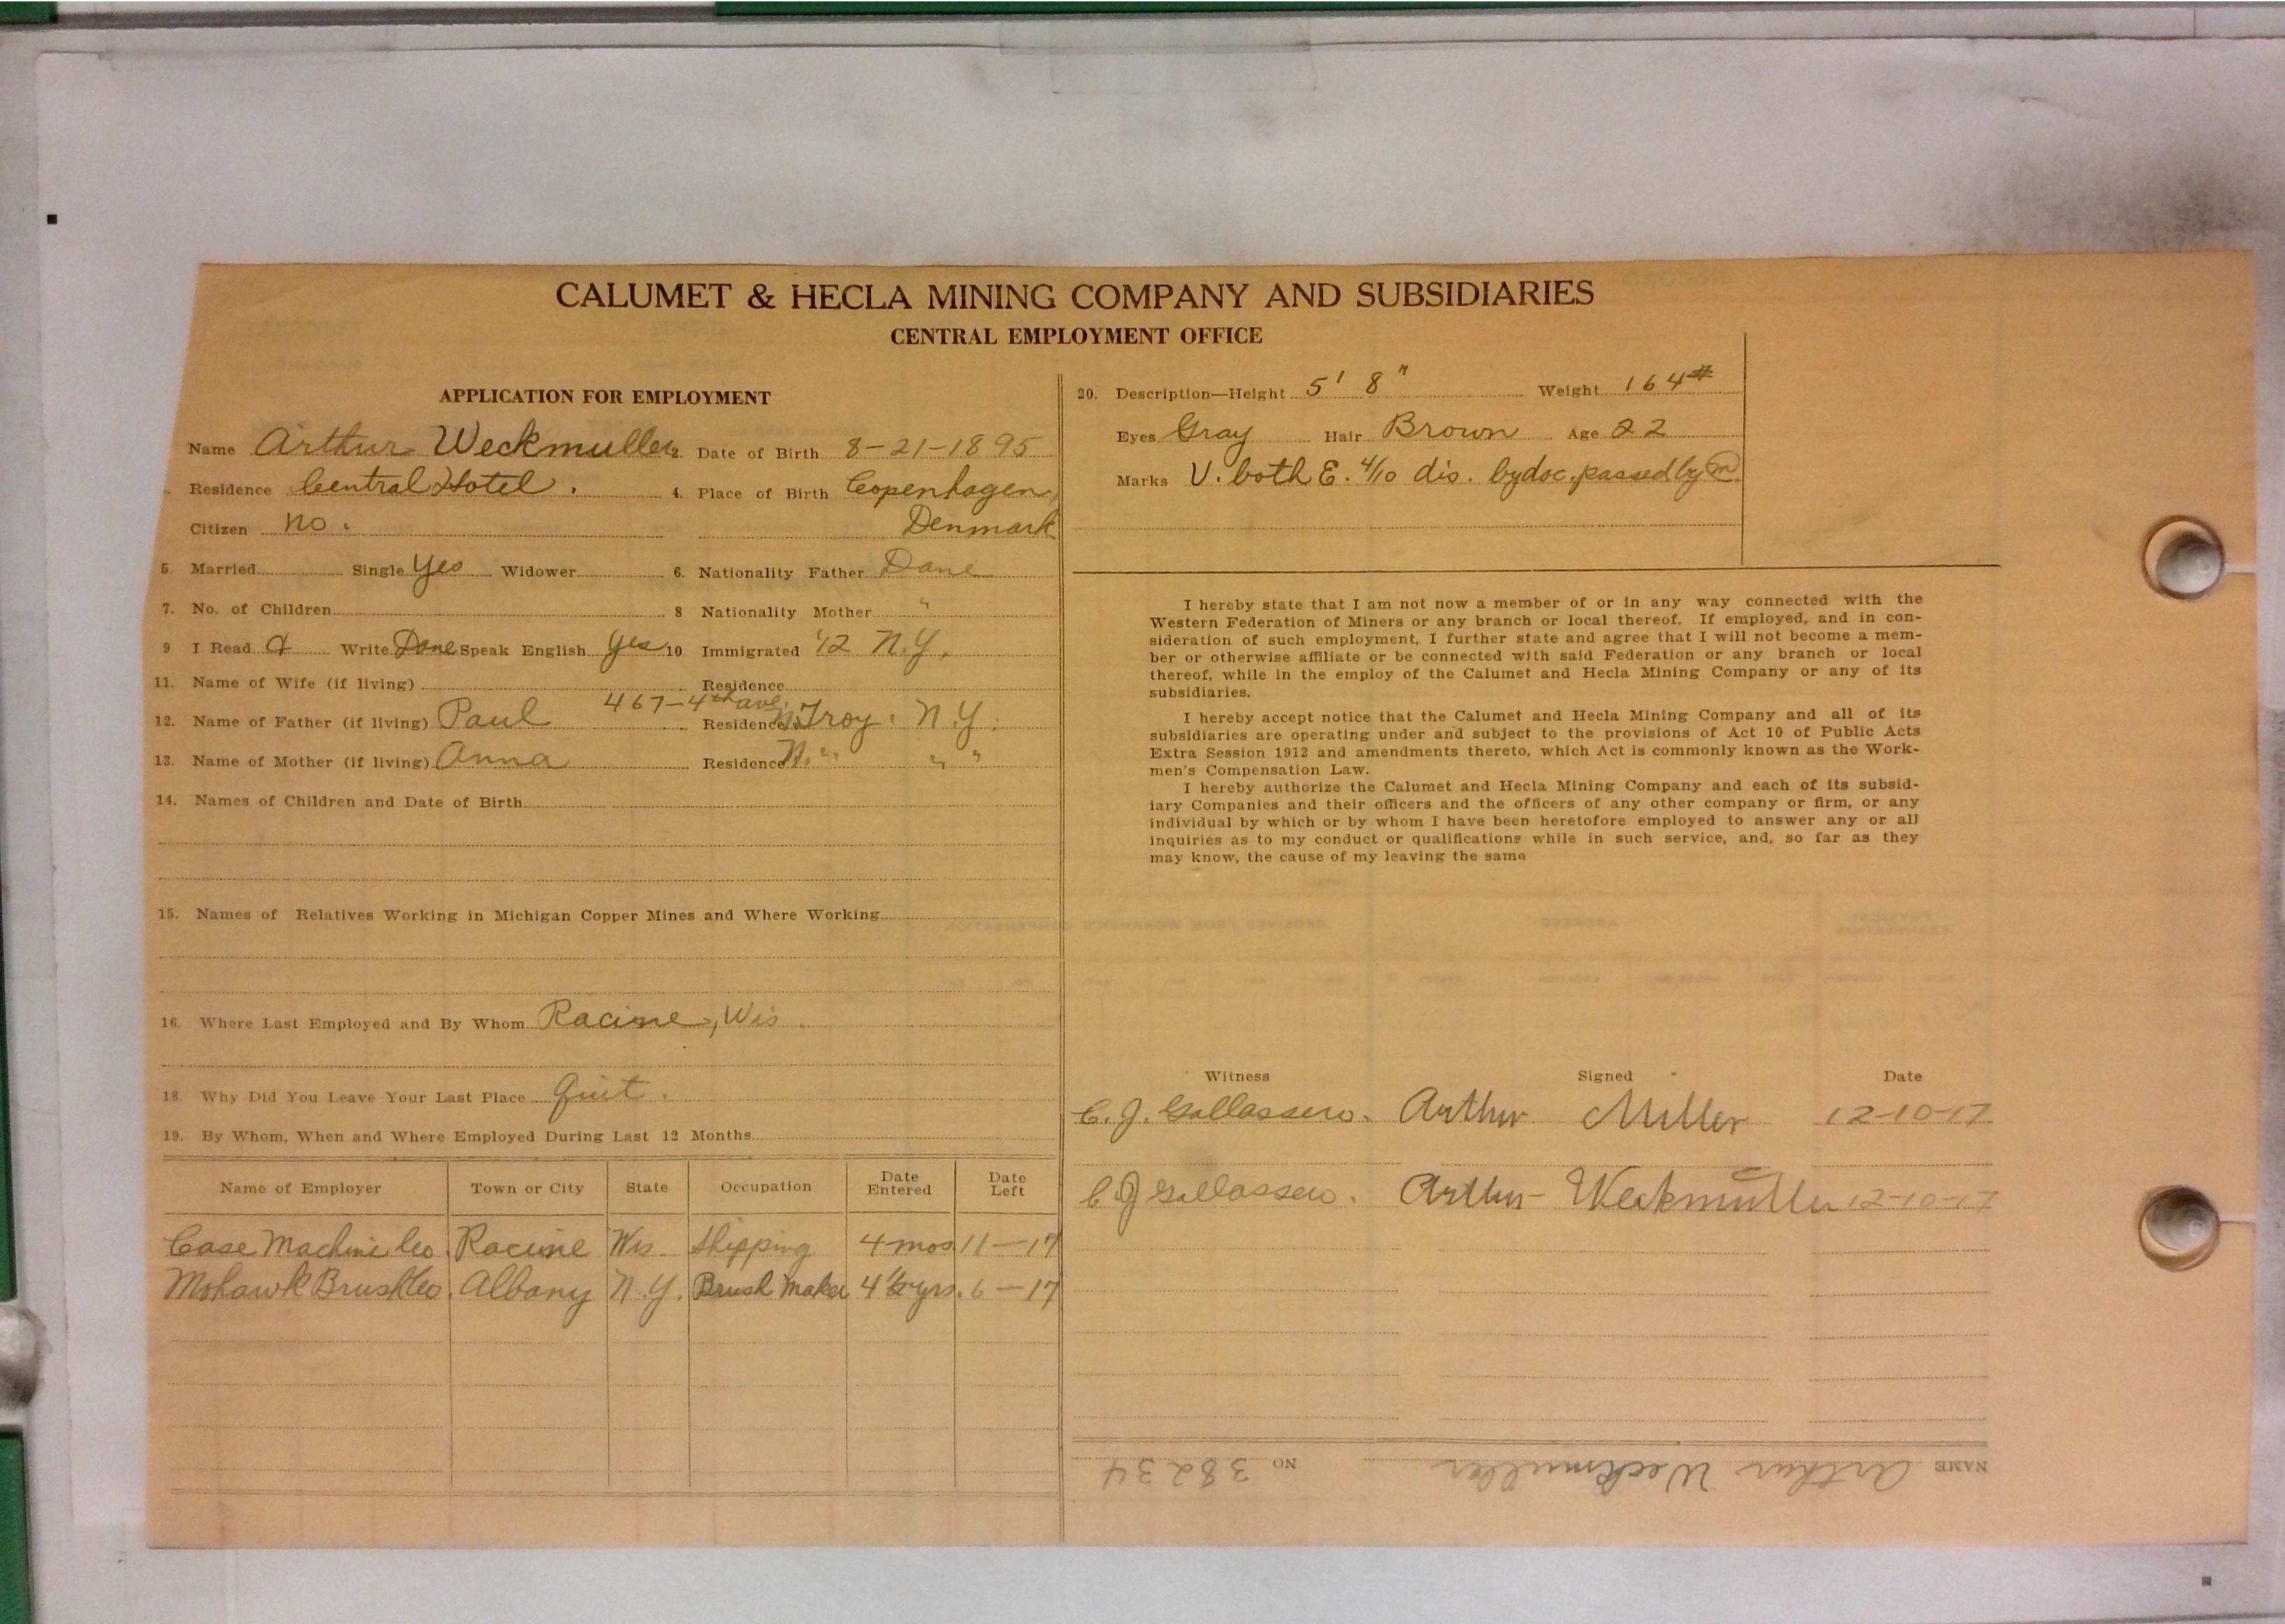 CALUMET & HECLA MINING COMPANY AND SUBSIDIARIES
CENTRAL EMPLOYMENT OFFICE
APPLICATION FOR EMPLOYMENT
Name Arthur Weckmuller 2. Date of Birth 8-21-1895
Residence Central Hotel. 4. Place of Birth Copenhagen,
Citizen no. Denmark
5. Married Single Yes Widower 6. Nationality Father Dane
7. No. of Children 8 Nationality Mother "
9 I Read & Write Dane Speak English Yes 10 Immigrated '12 N.Y.
11. Name of Wife (if living) Residence
467-4th ave.
12. Name of Father (if living) Paul Residence N. Troy. N.Y.
13. Name of Mother (if living) Anna Residence N. " " "
14. Names of Children and Date of Birth
15. Names of Relatives Working in Michigan Copper Mines and Where Working
16. Where Last Employed and By Whom Racine, Wis.
18. Why Did You Leave Your Last Place Quit.
19. By Whom, When and Where Employed During Last 12 Months
Name of Employer Town or City State Occupation Date Entered Date Left
Case Machine Co. Racine Wis. Shipping 4 mos 11-17
Mohawk Brush Co. Albany N.Y. Brush Maker 4 1/2 yrs. 6-17
20. Description—Height 5' 8" Weight 164#
Eyes Gray Hair Brown Age 22
Marks V. both E. 4/10 dis. by doc. passed by m
I hereby state that I am not now a member of or in any way connected with the
Western Federation of Miners or any branch or local thereof. If employed, and in con-
sideration of such employment, I further state and agree that I will not become a mem-
ber or otherwise affiliate or be connected with said Federation or any branch or local
thereof, while in the employ of the Calumet and Hecla Mining Company or any of its
subsidiaries.
I hereby accept notice that the Calumet and Hecla Mining Company and all of its
subsidiaries are operating under and subject to the provisions of Act 10 of Public Acts
Extra Session 1912 and amendments thereto, which Act is commonly known as the Work-
men's Compensation Law.
I hereby authorize the Calumet and Hecla Mining Company and each of its subsid-
iary Companies and their officers and the officers of any other company or firm, or any
individual by which or by whom I have been heretofore employed to answer any or all
inquiries as to my conduct or qualifications while in such service, and, so far as they
may know, the cause of my leaving the same
Witness Signed Date
C. J. Gallassero. Arthur Miller 12-10-17
C J Gallassero. Arthur Weckmuller 12-10-17
NAME Arthur Weckmuller NO 38234